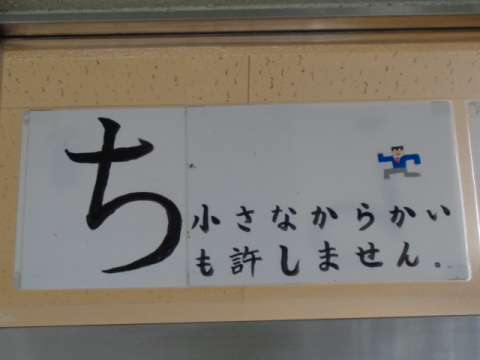 ち
小さなからかい
も許しません。